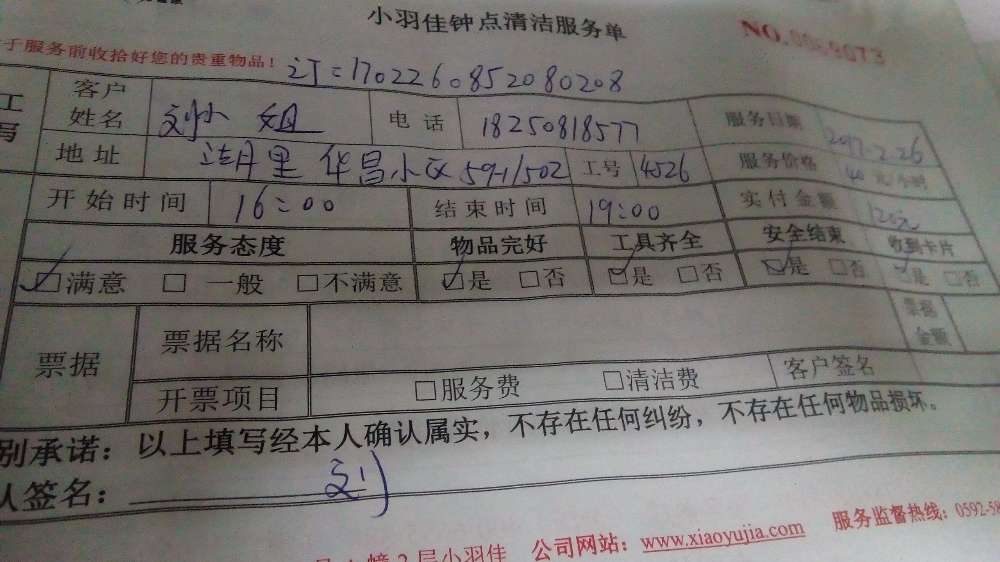 小羽佳钟点清洁服务单
NO.0069073
于服务前收拾好您的贵重物品！
订：1702260852080208
工 客户姓名 刘小姐 电话 18250818577 服务日期 2017.2.26
写 地址 华昌小区 591/502 工号 4526 服务价格 40元/小时
开始时间 16：00 结束时间 19：00 实付金额 120元
服务态度 物品完好 工具齐全 安全结束 收到卡片
☑满意 □ 一般 □不满意 ☑是 □否 ☑是 □否 ☑是 □否 ☑是 □否
票据 票据名称 票据金额
开票项目 □服务费 □清洁费 客户签名
别承诺：以上填写经本人确认属实，不存在任何纠纷，不存在任何物品损坏。
人签名：刘
2层小羽佳 公司网站：www.xiaoyujia.com 服务监督热线：0592-58